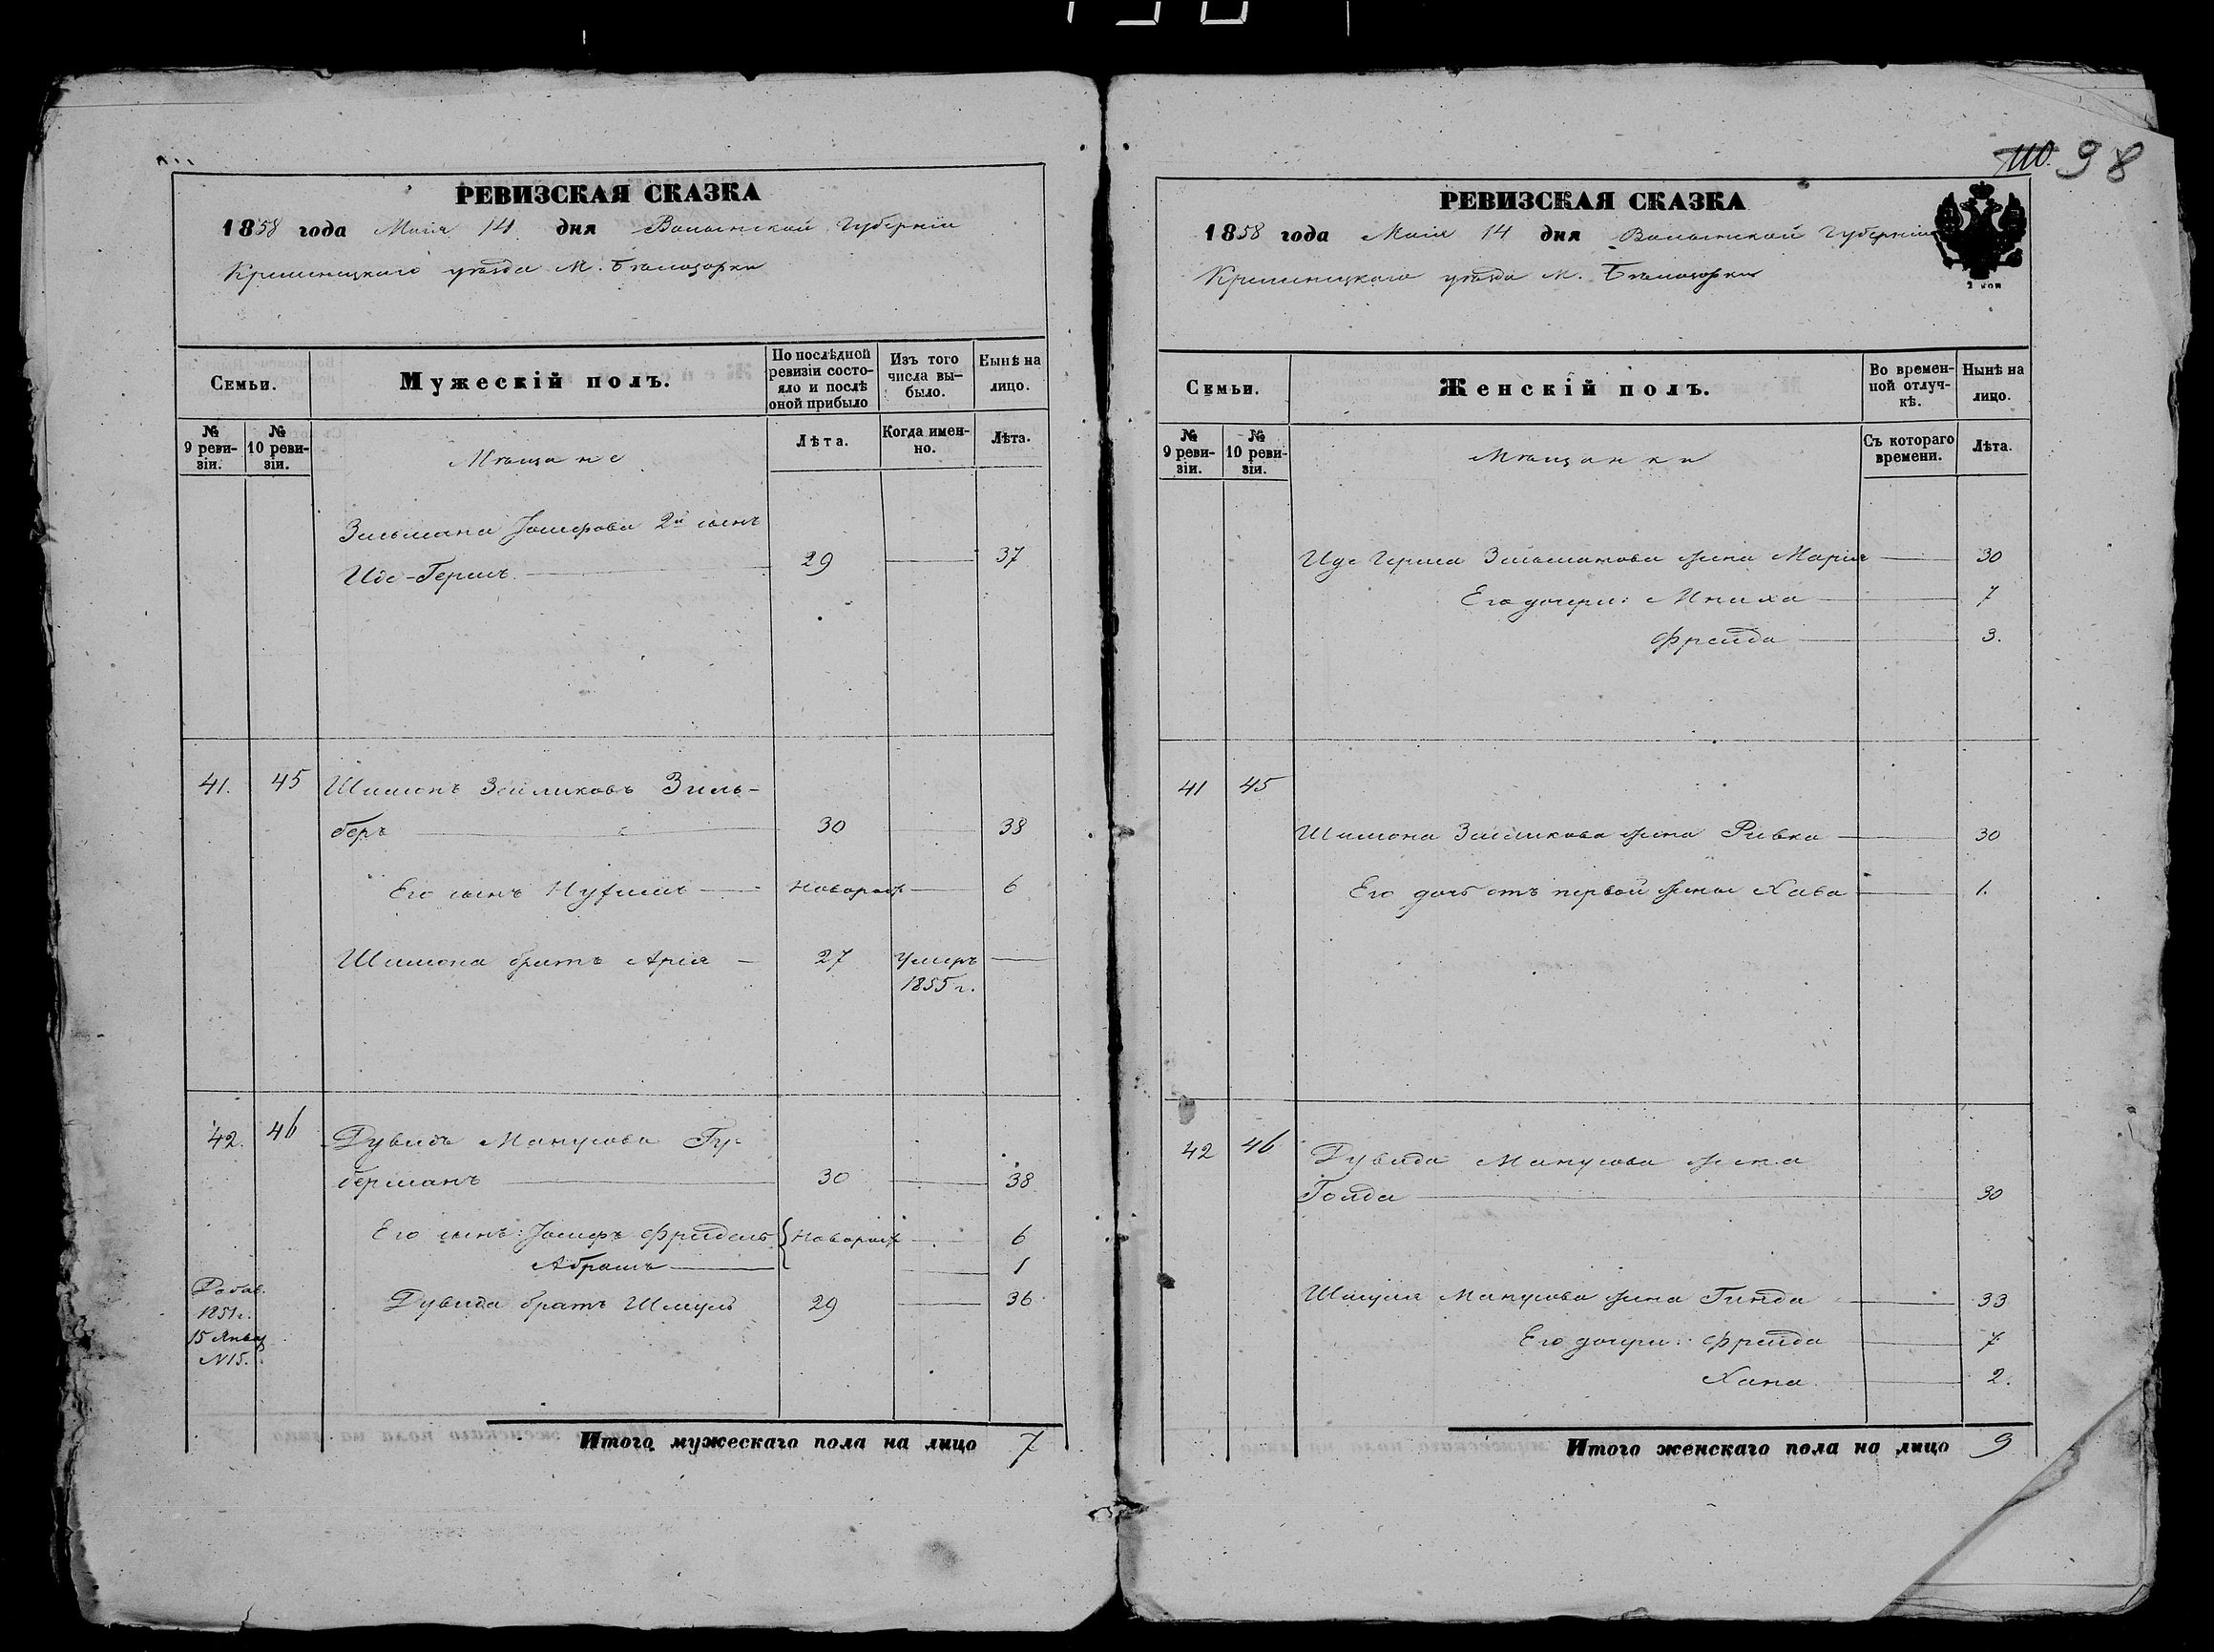 110. 98
РЕВИЗСКАЯ СКАЗКА
1858 года Маія 14 дня Волынской Губерніи
Кременецкаго уѣзда М. Бѣлозорки
Семьи.
Мужескій полъ.
По послѣдной ревизіи состо-
яло и послѣ
оной прибыло
Изъ того
числа вы-
было.
Нынѣ на
лицо.
№
9 реви-
зіи.
№
10 реви-
зіи.
Мѣщане
Лѣта.
Когда имен-
но.
Лѣта.
Зильмана Іосифова 2й сынъ
Иде-Гершъ 29 37
41. 45 Шимонъ Зейликовъ Зиль-
беръ 30 38
Его сынъ Нухимъ Новорож 6
Шимона братъ Арія 27 Умеръ
1855 г.
42. 46 Дувидъ Манусовъ Гу-
берманъ 30 38
Его сынъ: Іосифъ Фридель Новорож 6
Абрамъ 1
Добав.
1851 г.
15 Январ
N 15.
Дувида братъ Шмуль 29 36
Итого мужескаго пола на лицо 7
РЕВИЗСКАЯ СКАЗКА
1858 года Маія 14 дня Волынской Губерніи
Кременецкаго уѣзда М. Бѣлозорки
2 коп
Семьи.
Женскій полъ.
Во времен-
ной отлуч-
кѣ.
Нынѣ на
лицо.
№
9 реви-
зіи.
№
10 реви-
зіи.
Мѣщанки
Съ котораго
времени.
Лѣта.
Иде Герша Зильманова жена Марія 30
Его дочери: Мниха 7
Фрейда 3.
41 45
Шимона Зейликова жена Ривка 30
Его дочь отъ первой жены Хава 1.
42 46 Дувида Манусова жена
Голда 30
Шмуля Манусова жена Гинда 33
Его дочери: Фрейда 7
Хана 2.
Итого женскаго пола на лицо 9